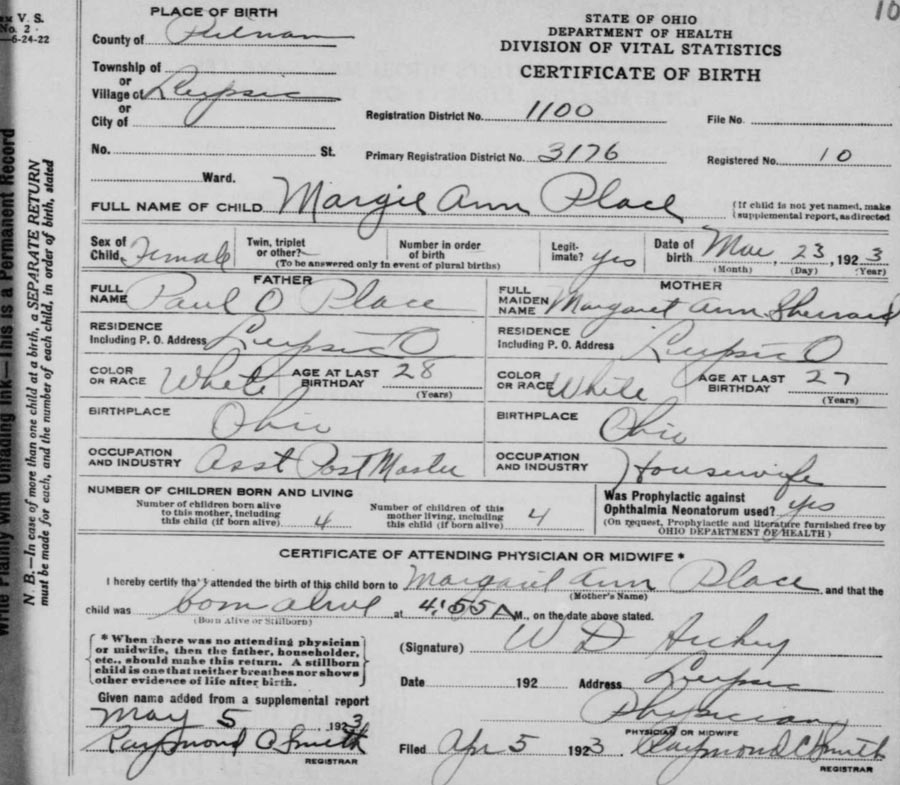 V. S.
No. 2
—6-24-22
10
PLACE OF BIRTH
County of Putnam
Township of
or
Village of Leipsic
or
City of
No. St.
Ward.
STATE OF OHIO
DEPARTMENT OF HEALTH
DIVISION OF VITAL STATISTICS
CERTIFICATE OF BIRTH
Registration District No. 1100 File No.
Primary Registration District No. 3176 Registered No. 10
FULL NAME OF CHILD Margie Ann Place
(If child is not yet named, make
supplemental report, as directed
Sex of Child Female
Twin, triplet or other?
Number in order of birth
(To be answered only in event of plural births)
Legitimate? yes
Date of birth Mar, 23, 1923
(Month) (Day) (Year)
FATHER
FULL NAME Paul O Place
RESIDENCE
Including P. O. Address Leipsic O
COLOR OR RACE White AGE AT LAST BIRTHDAY 28
(Years)
BIRTHPLACE Ohio
OCCUPATION AND INDUSTRY Asst Post Master
MOTHER
FULL MAIDEN NAME Margaret Ann Sherrard
RESIDENCE
Including P. O. Address Leipsic O
COLOR OR RACE White AGE AT LAST BIRTHDAY 27
(Years)
BIRTHPLACE Ohio
OCCUPATION AND INDUSTRY Housewife
NUMBER OF CHILDREN BORN AND LIVING
Number of children born alive
to this mother, including
this child (if born alive) 4
Number of children of this
mother living, including
this child (if born alive) 4
Was Prophylactic against
Ophthalmia Neonatorum used? yes
(On request, Prophylactic and literature furnished free by
OHIO DEPARTMENT OF HEALTH)
CERTIFICATE OF ATTENDING PHYSICIAN OR MIDWIFE*
I hereby certify that I attended the birth of this child born to Margaret Ann Place, and that the
(Mother's Name)
child was born alive at 4:55 A M., on the date above stated.
(Born Alive or Stillborn)
* When there was no attending physician
or midwife, then the father, householder,
etc., should make this return. A stillborn
child is one that neither breathes nor shows
other evidence of life after birth.
(Signature) W D Hickey
Date 192 Address Leipsic
Physician
PHYSICIAN OR MIDWIFE
Given name added from a supplemental report
May 5, 1923
Raymond C Smith
REGISTRAR
Filed Apr 5 1923 Raymond C Smith
REGISTRAR
Write Plainly With Unfading Ink—This is a Permanent Record
N. B.—In case of more than one child at a birth, a SEPARATE RETURN
must be made for each, and the number of each child, in order of birth, stated